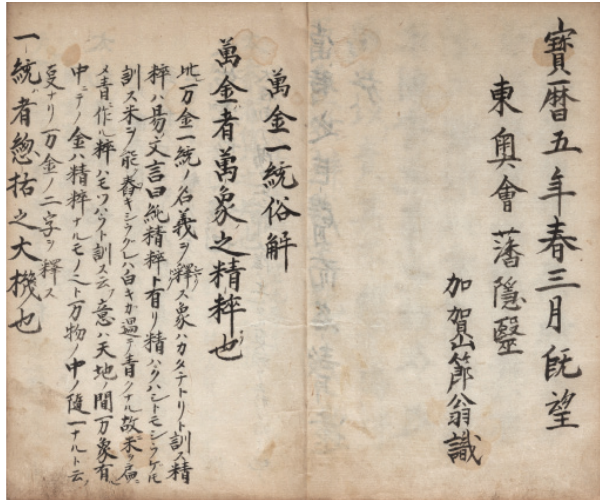 寶暦五年春三月既望
東奥會藩隱毉
加賀山節翁識
萬金一統俗解
萬金者萬象之精粹也
此万金一統ノ名義ヲ釋ス象ハカタチトリト訓ス精
粹ハ易ノ文言曰純精粹ト有リ精ハクハシトモシラケトモ
訓ス米ヲ能ク舂キシラグレハ白キカ過テ青クナル故米ヲ扁ニ
メ青ニ作ル粹ハモツハラト訓ス云意ハ天地ノ間万象有
中ニテノ金ハ精粹ナルモノヘト万物ノ中ノ隨一ナルト云
叓ナリ万金ノ二字ヲ釋ス
一統者總括之大機也